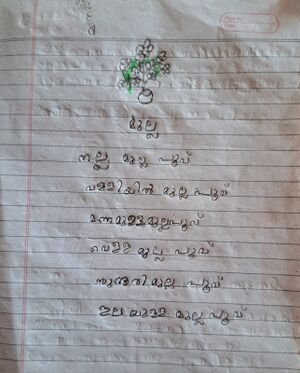 മുല്ല
നല്ല മുല്ല പൂവ്
വള്ളിയിൽ മുല്ല പൂവ്
മണമുള്ള മുല്ലപൂവ്
വെള്ള മുല്ല പൂവ്
സുന്ദരി മുല്ല പൂവ്
ഇലയുള്ള മുല്ല പൂവ്